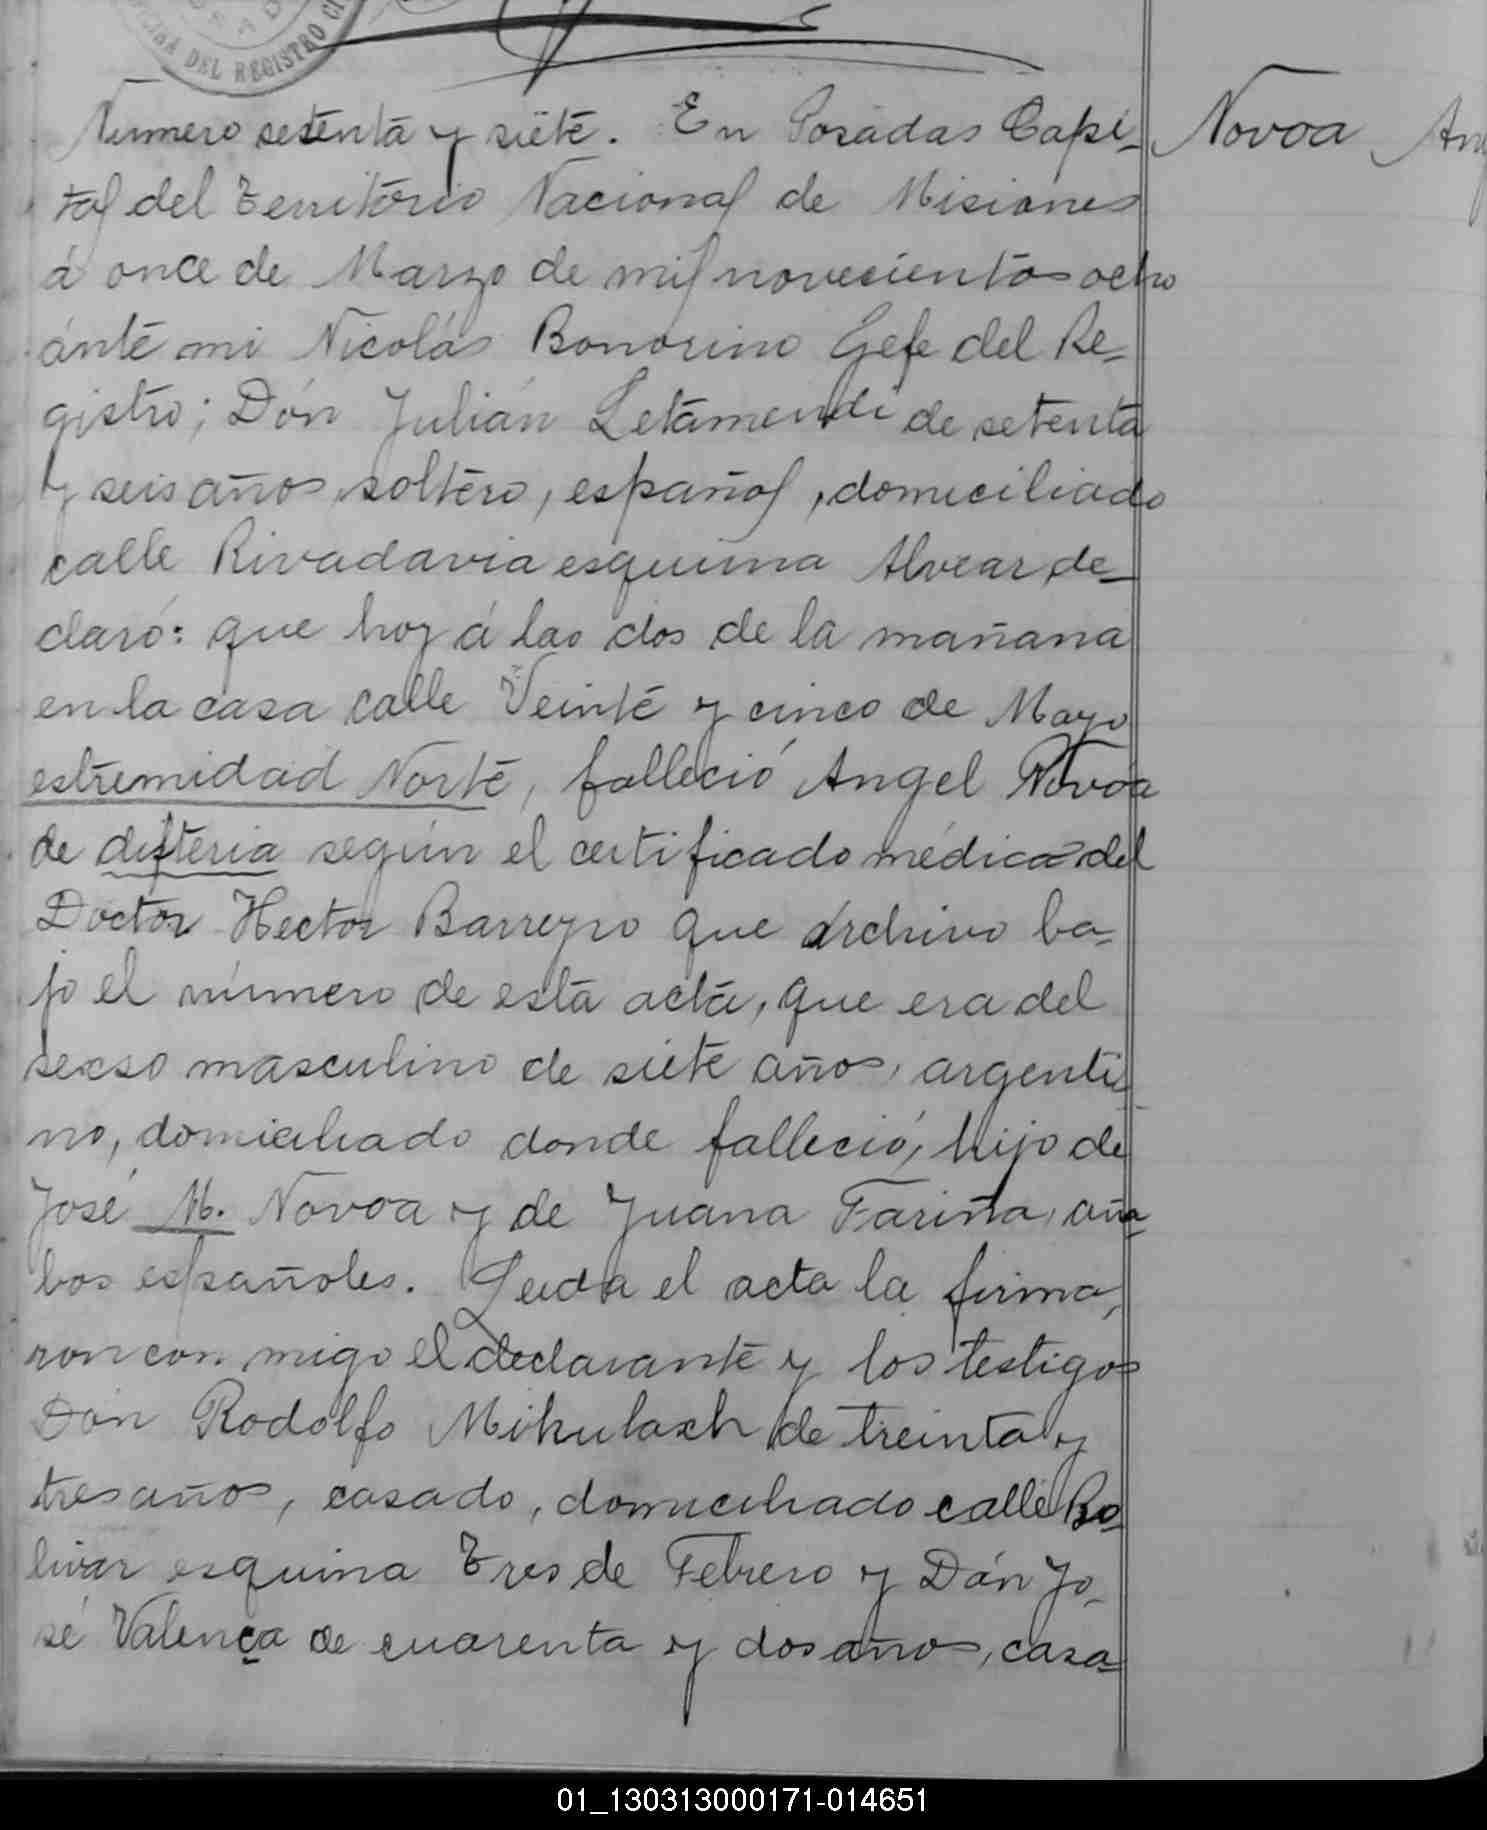 DEL REGISTRO CI
Numero setenta y siete. En Posadas Capi- Novoa Ang
tal del Territorio Nacional de Misiones
á once de Marzo de mil novecientos ocho
ánte mi Nicolás Bonorino Gefe del Re-
gistro; Dón Julián Letamendi de setenta
y seis años, soltero, español, domiciliado
calle Rivadavia esquina Alvear de-
claró: que hoy á las dos de la mañana
en la casa calle Veinte y cinco de Mayo
estremidad Norte, falleció Angel Novoa
de difteria según el certificado médico del
Doctor Hector Barreyro que archivo ba-
jo el número de esta acta, que era del
secso masculino de siete años, argenti-
no, domiciliado donde falleció, hijo de
José M. Novoa y de Juana Fariña, am-
bos españoles. Leida el acta la firma-
ron con migo el declarante y los testigos
Dón Rodolfo Mikulasch de treinta y
tres años, casado, domiciliado calle Bo-
livar esquina Tres de Febrero y Dón Jo-
sé Valença de cuarenta y dos años, casa-
01_130313000171-014651